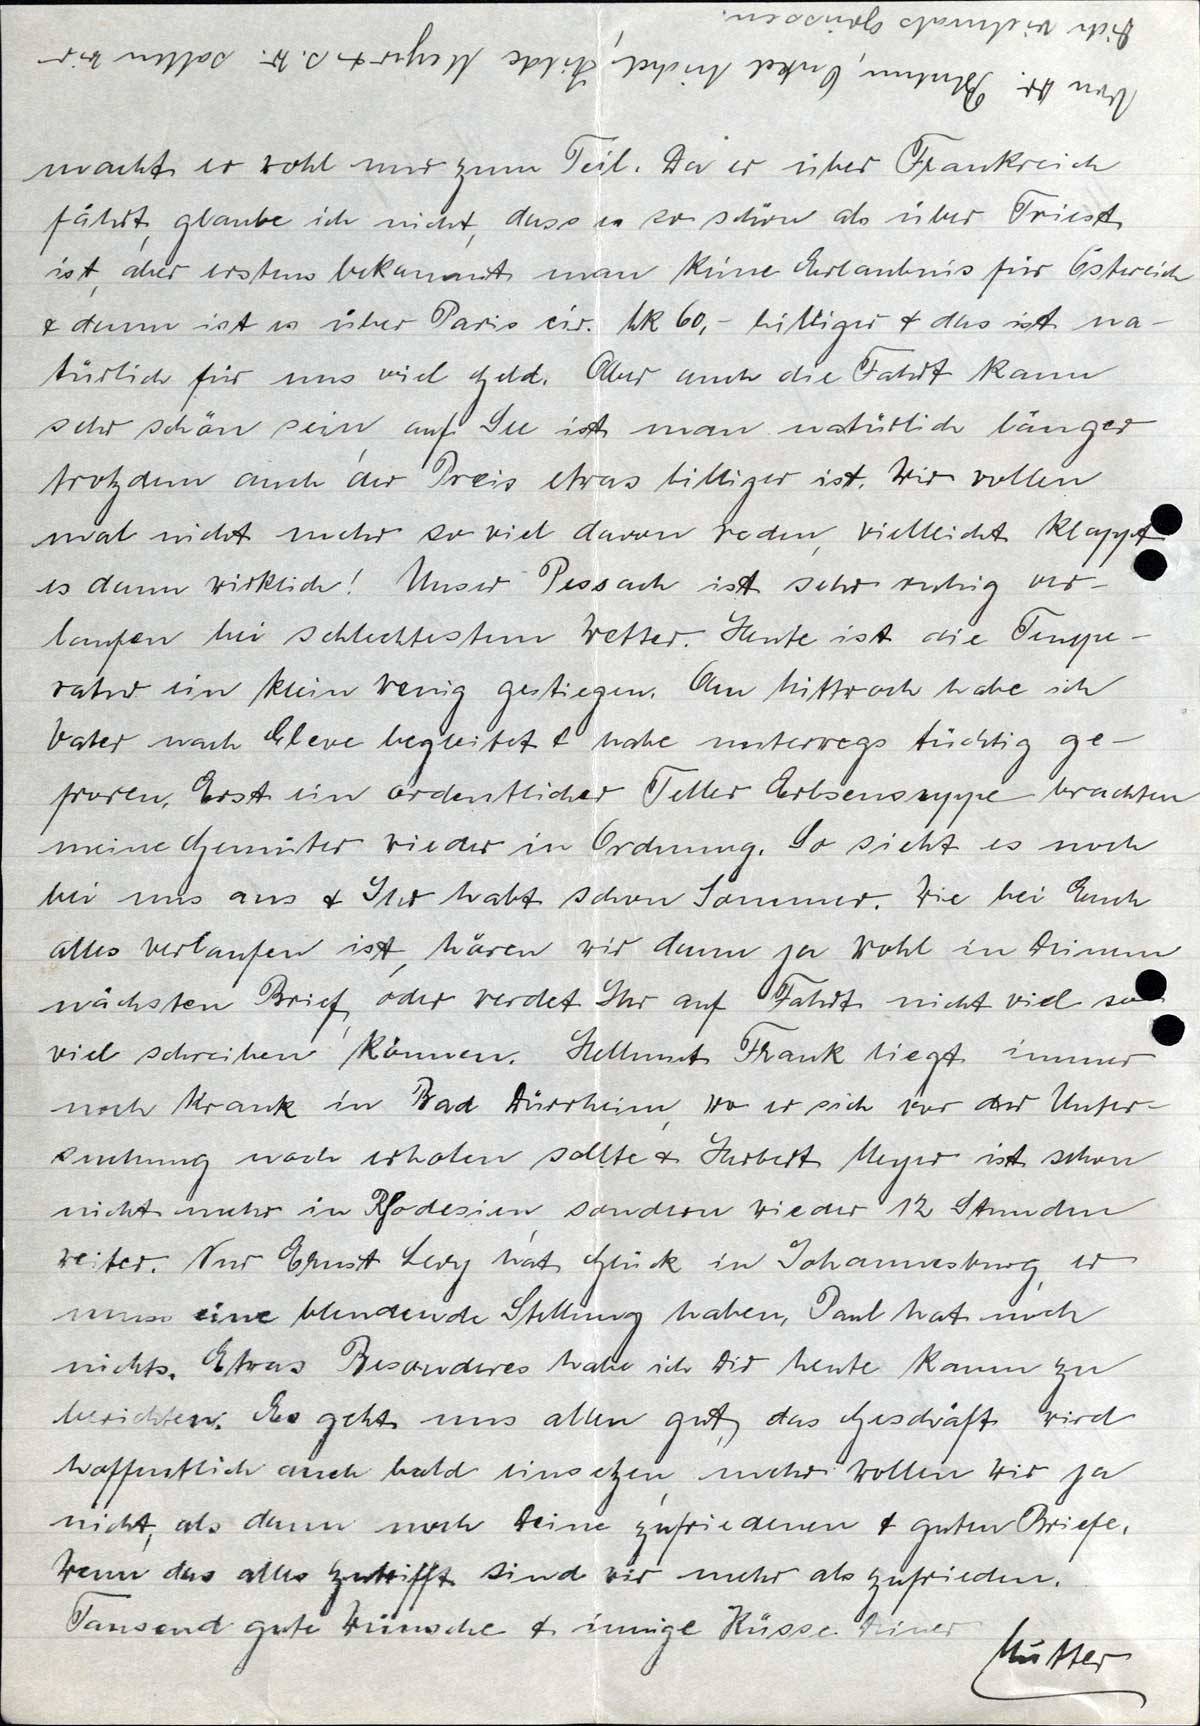 macht er wohl nur zum Teil. Da er über Frankreich
fährt, glaube ich nicht, dass es so schön als über Triest
ist, aber erstens bekommt man keine Erlaubnis für Östereich
& dann ist es über Paris cir. Mk 60,- billiger & das ist na-
türlich für uns viel Geld. Aber auch die Fahrt kann
sehr schön sein, auf See ist man natürlich länger
trotzdem auch der Preis etwas billiger ist. Wir wollen
mal nicht mehr so viel davon reden, vielleicht klappt
es dann wirklich! Unser Pessach ist sehr ruhig ver-
laufen bei schlechtestem Wetter. Heute ist die Tempe-
ratur ein klein wenig gestiegen. Am Mittwoch habe ich
Vater nach Cleve begleitet & habe unterwegs tüchtig ge-
froren. Erst ein ordentlicher Teller Erbsensuppe brachten
meine Gemüter wieder in Ordnung. So sieht es noch
bei uns aus & Ihr habt schon Sommer. Wie bei Euch
alles verlaufen ist, hören wir dann ja wohl in Deinem
nächsten Brief, oder werdet Ihr auf Fahrt nicht viel so
viel schreiben können. Hellmut Frank liegt immer
noch krank in Bad Dürrheim, wo er sich vor der Unter-
suchung noch erholen sollte & Herbert Meyer ist schon
nicht mehr in Rhodesien, sondern wieder 12 Stunden
weiter. Nur Ernst Levy hat Glück in Johannesburg, er
muss eine blendende Stellung haben, Paul hat noch
nichts. Etwas Besonderes habe ich Dir heute kaum zu
berichten. Es geht uns allen gut, das Geschäft wird
hoffentlich auch bald einsetzen, mehr wollen wir ja
nicht, als dann noch Deine zufriedenen & guten Briefe.
Wenn das alles zutrifft sind wir mehr als zufrieden.
Tausend gute Wünsche & innige Küsse Deiner
Mutter
Von Dr. Onkel Michel, Hilde Meyer & s. w. sollen wir
Dich vielmals grüssen.